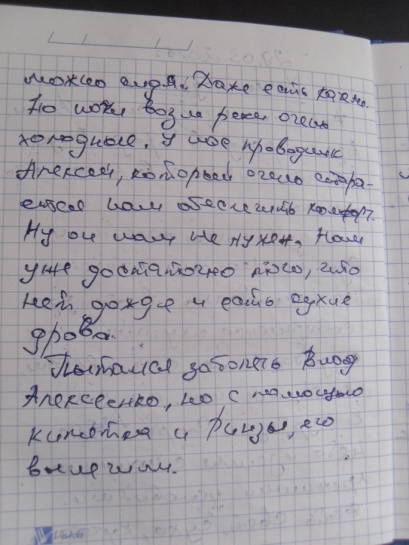 можно сидя. Даже есть казано.
Но ночи возле реки очень
холодные. У нас проводник
Алексей, который очень стара-
ется нам обеспечить комфорт.
Ну он нам не нужен. Нам
уже достаточно того, что
нет дождя и есть сухие
дрова.
Пытался заболеть Влад
Алексеенко, но с помощью
кипятка и
его
вылечили.